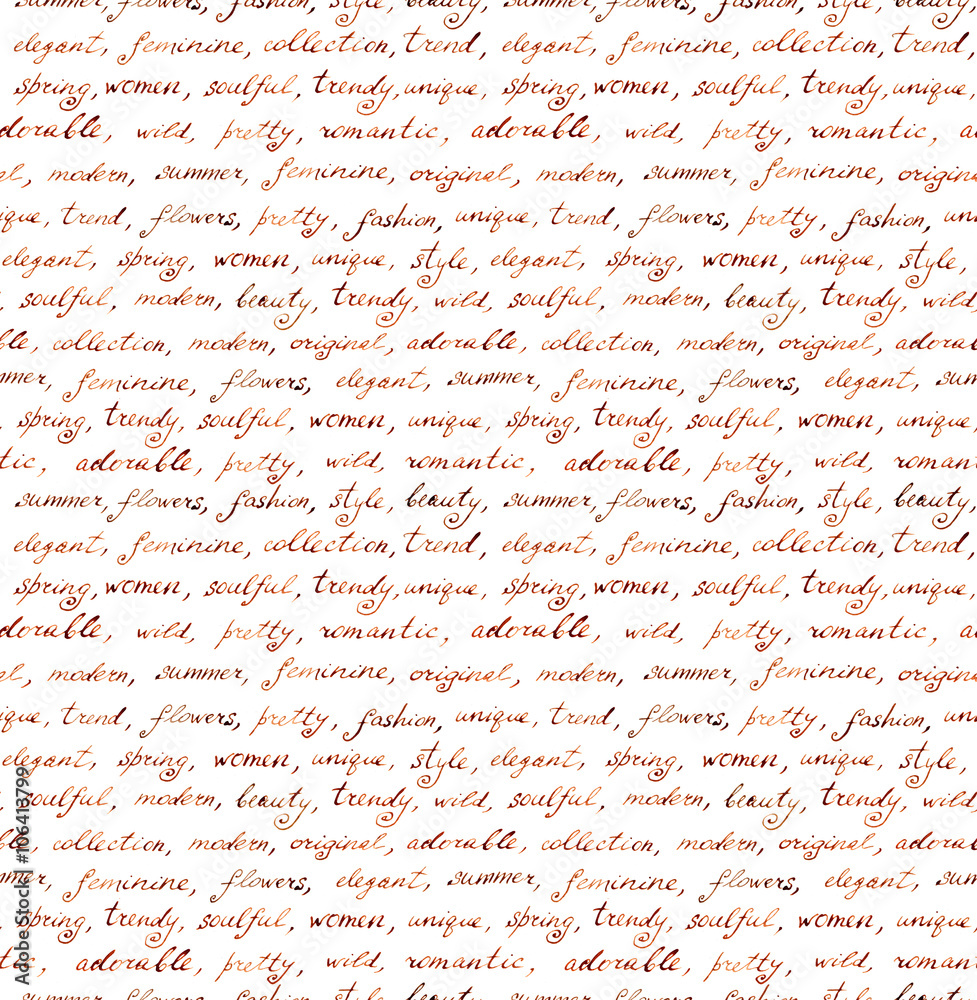 summer, flowers, fashion, style, beauty, summer, flowers, fashion, style, beauty,
elegant, feminine, collection, trend, elegant, feminine, collection, trend,
spring, women, soulful, trendy, unique, spring, women, soulful, trendy, unique,
dorable, wild, pretty, romantic, adorable, wild, pretty, romantic, a
al, modern, summer, feminine, original, modern, summer, feminine, origina
ique, trend, flowers, pretty, fashion, unique, trend, flowers, pretty, fashion, uni
elegant, spring, women, unique, style, elegant, spring, women, unique, style,
, soulful, modern, beauty, trendy, wild, soulful, modern, beauty, trendy, wild,
ble, collection, modern, original, adorable, collection, modern, original, adorab
mmer, feminine, flowers, elegant, summer, feminine, flowers, elegant, sum
, spring, trendy, soulful, women, unique, spring, trendy, soulful, women, unique,
tic, adorable, pretty, wild, romantic, adorable, pretty, wild, roman
summer, flowers, fashion, style, beauty, summer, flowers, fashion, style, beauty,
elegant, feminine, collection, trend, elegant, feminine, collection, trend,
spring, women, soulful, trendy, unique, spring, women, soulful, trendy, unique,
dorable, wild, pretty, romantic, adorable, wild, pretty, romantic, a
al, modern, summer, feminine, original, modern, summer, feminine, origina
ique, trend, flowers, pretty, fashion, unique, trend, flowers, pretty, fashion, uni
elegant, spring, women, unique, style, elegant, spring, women, unique, style,
, soulful, modern, beauty, trendy, wild, soulful, modern, beauty, trendy, wild,
ble, collection, modern, original, adorable, collection, modern, original, adorab
mmer, feminine, flowers, elegant, summer, feminine, flowers, elegant, sum
, spring, trendy, soulful, women, unique, spring, trendy, soulful, women, unique,
tic, adorable, pretty, wild, romantic, adorable, pretty, wild, roman
summer, flowers, fashion, style, beauty, summer, flowers, fashion, style, beauty,
Adobe Stock | #106413799